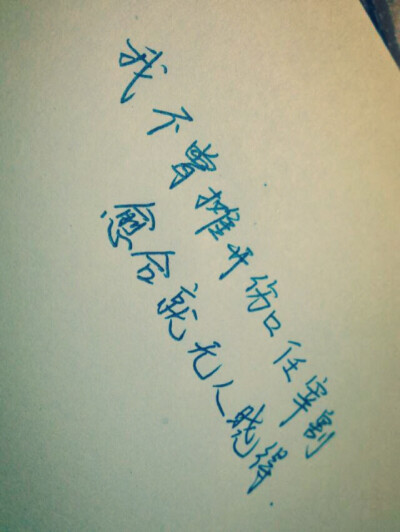 我不曾摊开伤口任宰割
愈合就无人晓得.